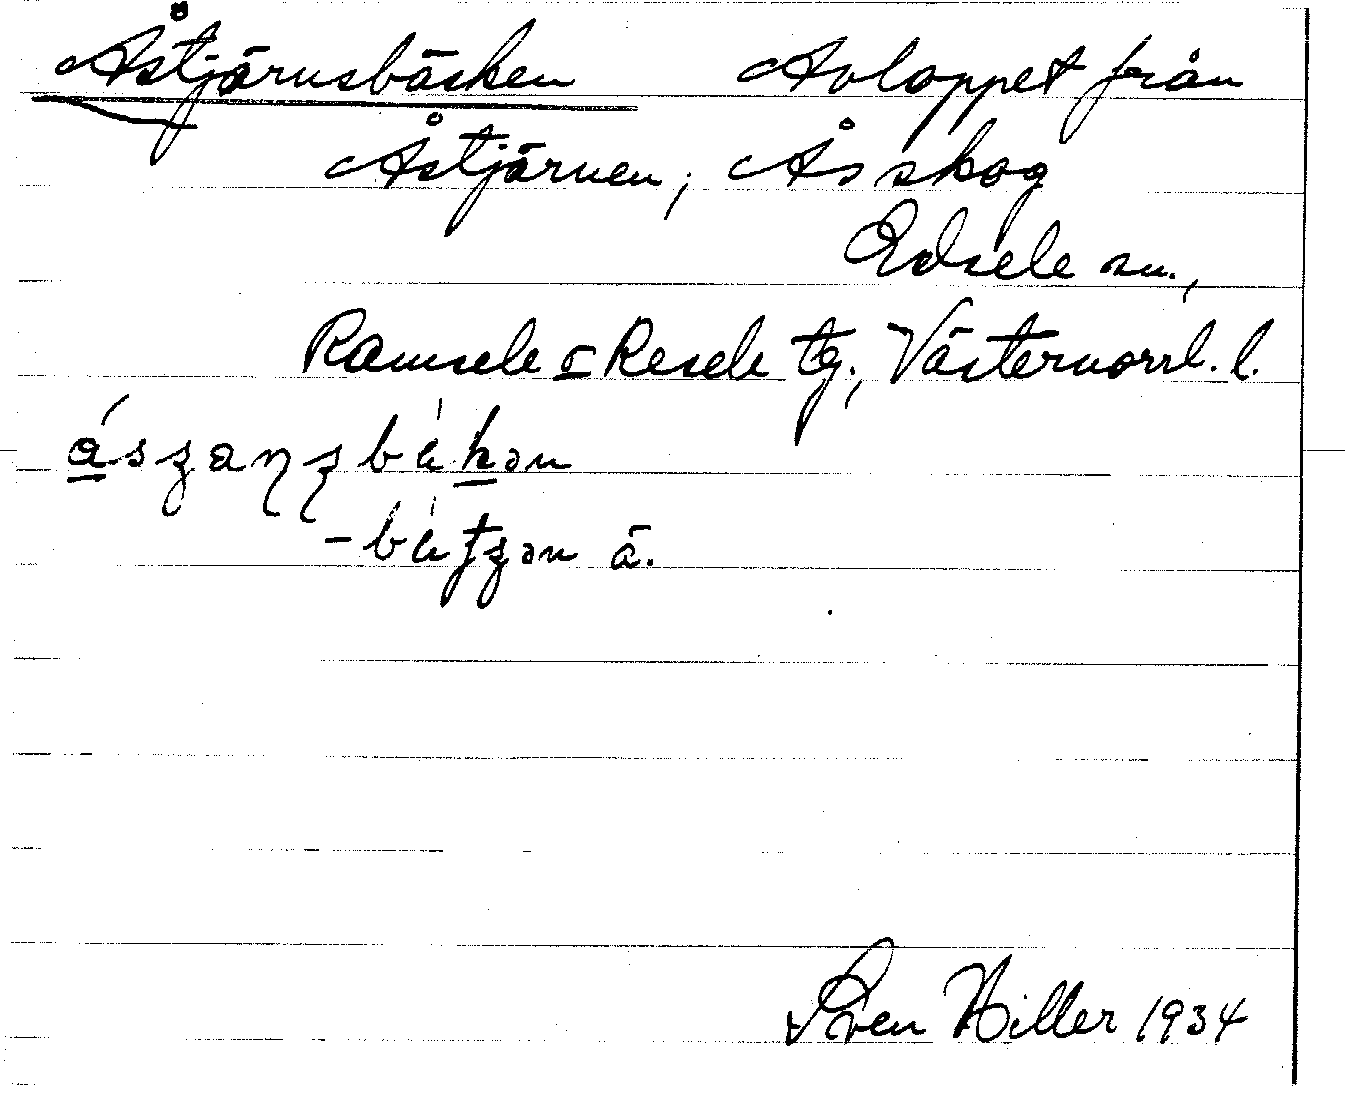 Åstjärnsbäcken Avloppet från
Åstjärnen, Ås skog
Edsele sn.,
Ramsele o Resele tg., Västernorrl. l.
ä.
Sven Hiller 1934